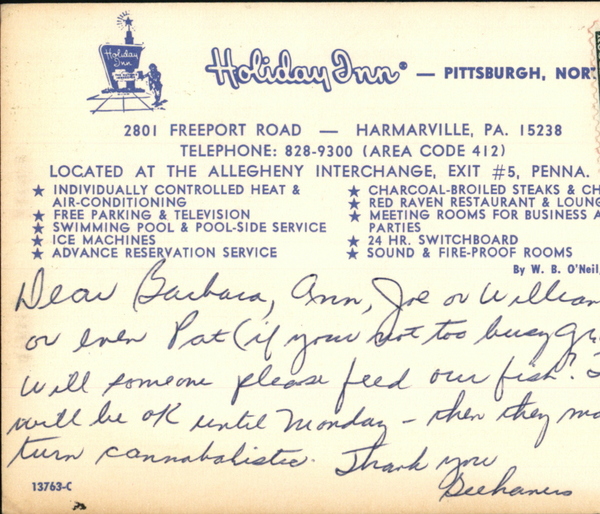 Holiday Inn
Holiday Inn® — PITTSBURGH, NOR
2801 FREEPORT ROAD — HARMARVILLE, PA. 15238
TELEPHONE: 828-9300 (AREA CODE 412)
LOCATED AT THE ALLEGHENY INTERCHANGE, EXIT #5, PENNA.
★ INDIVIDUALLY CONTROLLED HEAT &
AIR-CONDITIONING
★ FREE PARKING & TELEVISION
★ SWIMMING POOL & POOL-SIDE SERVICE
★ ICE MACHINES
★ ADVANCE RESERVATION SERVICE
★ CHARCOAL-BROILED STEAKS & CH
★ RED RAVEN RESTAURANT & LOUNG
★ MEETING ROOMS FOR BUSINESS A
PARTIES
★ 24 HR. SWITCHBOARD
★ SOUND & FIRE-PROOF ROOMS
By W. B. O'Neil,
Dear Barbara, Ann, Joe or William
or even Pat (if your not too busy
Will someone please feed our fish?
will be OK until Monday – then they
turn cannabalistic. Thank you
13763-C